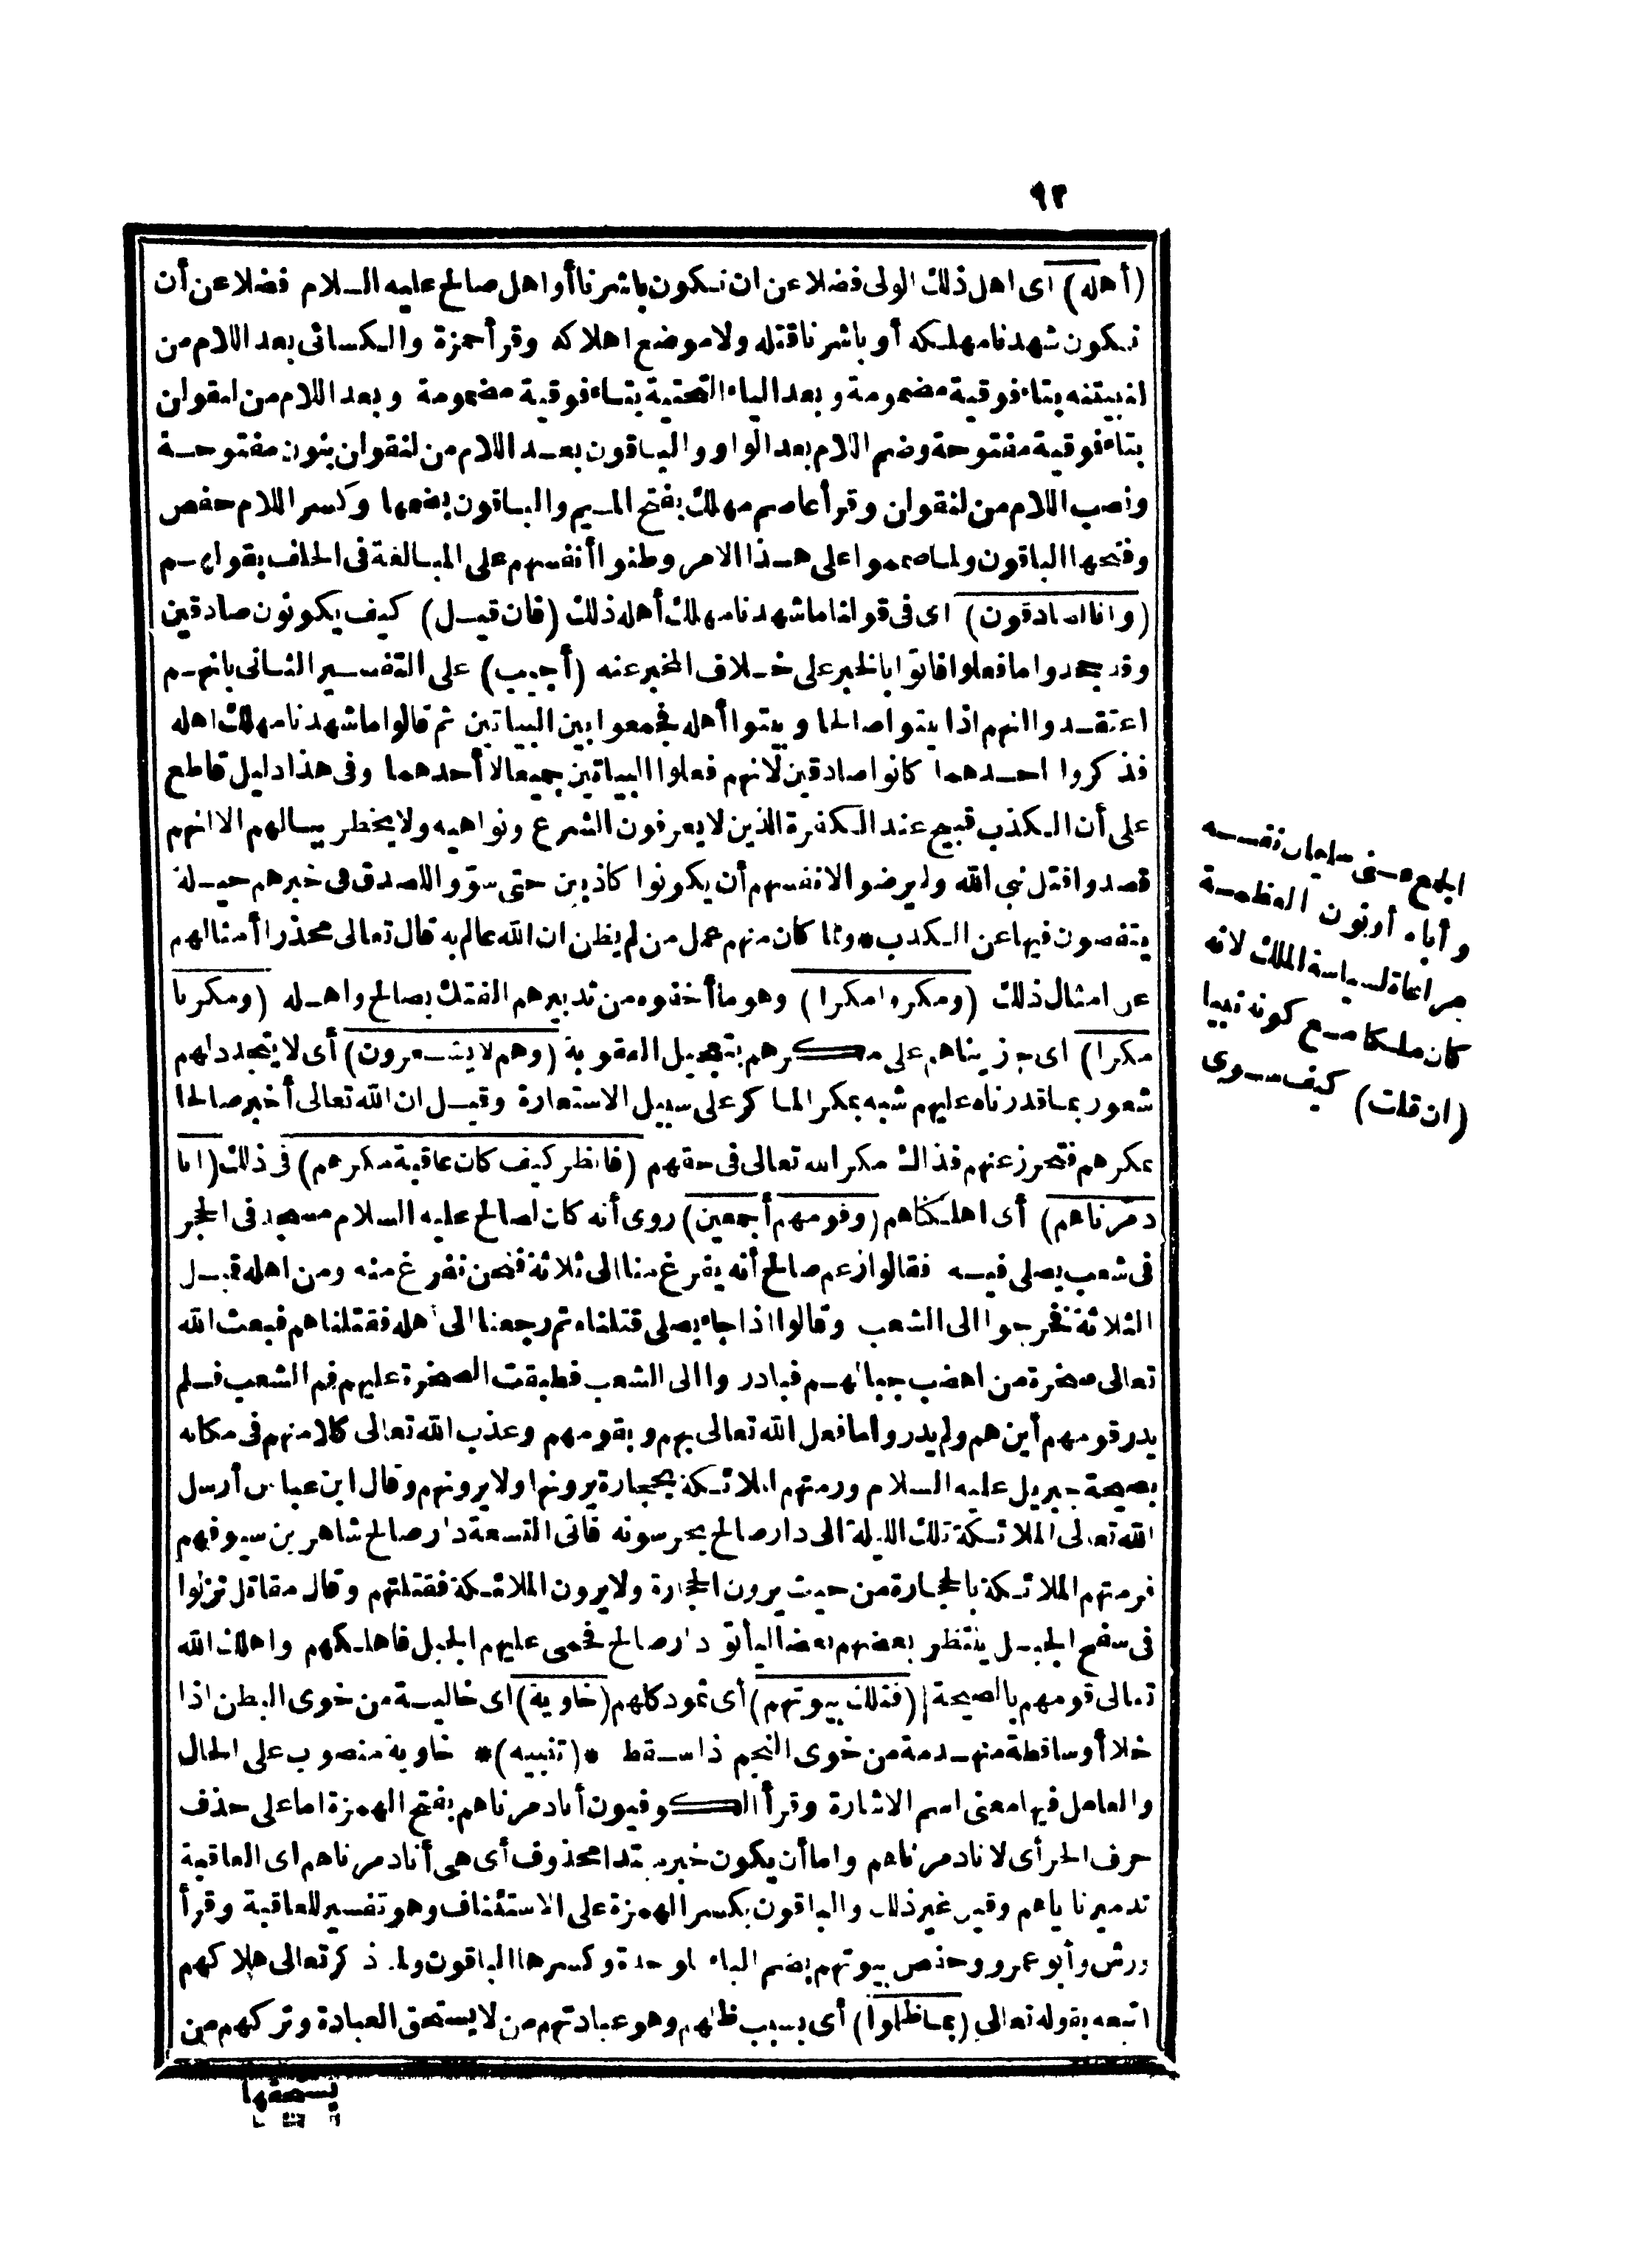 ٩٢
(أهله) اى اهل ذلك الولى فضلا عن ان نكون باشرنا أو اهل صالح عليه السلام فضلا عن أن
نكون شهدنا مهلكه أو باشرنا قتله ولا موضع اهلاكه وقرأ حمزة والكسائى بعد اللام من
لنبيتنه بتاء فوقية مضمومة وبعد الياء التحتية بتاء فوقية مضمومة وبعد اللام من لنقولن
بتاء فوقية مفتوحة وضم اللام بعد الواو والباقون بعد اللام من لنقولن بنون مفتوحة
ونصب اللام من لنقولن وقرأ عاصم مهلك بفتح الميم والباقون بضمها وكسر اللام حفص
وفتحها الباقون ولما صمموا على هذا الامر وطنوا أنفسهم على المبالغة فى الحلف بقولهم
(وانا لصادقون) اى فى قولنا ما شهدنا مهلك أهله ذلك (فان قيل) كيف يكونون صادقين
وقد جحدوا ما فعلوا فاتوا بالخبر على خلاف المخبر عنه (أجيب) على التفسير الثانى بانهم
اعتقدوا انهم اذا بيتوا صالحا وبيتوا أهله فجمعوا بين البياتين ثم قالوا ما شهدنا مهلك اهله
فذكروا احدهما كانوا صادقين لانهم فعلوا البياتين جميعا لا أحدهما وفى هذا دليل قاطع
على أن الكذب قبيح عند الكفرة الذين لا يعرفون الشرع ونواهيه ولا يخطر ببالهم الا انهم
قصدوا قتل نبى الله ولم يرضوا لانفسهم أن يكونوا كاذبين حتى سوّوا للصدق فى خبرهم حيلة
يتفصون فيها عن الكذب * ولما كان منهم عمل من لم يظن ان الله عالم به قال تعالى محذرا أمثالهم
عن امثال ذلك (ومكروا مكرا) وهو ما أخفوه من تدبيرهم الفتك بصالح واهله (ومكرنا
مكرا) اى جزيناهم على مكرهم بتعجيل العقوبة (وهم لا يشعرون) أى لا يتجدد لهم
شعور بما قدرناه عليهم شبه بمكر الماكر على سبيل الاستعارة وقيل ان الله تعالى أخبر صالحا
بمكرهم فتحرز عنهم فذاك مكر الله تعالى فى حقهم (فانظر كيف كان عاقبة مكرهم) فى ذلك (انا
دمرناهم) أى اهلكناهم (وقومهم أجمعين) روى أنه كان لصالح عليه السلام مسجد فى الحجر
فى شعب يصلى فيه فقالوا زعم صالح أنه يفرغ منا الى ثلاثة فنحن نفرغ منه ومن اهله قبل
الثلاثة فخرجوا الى الشعب وقالوا اذا جاء يصلى قتلناه ثم رجعنا الى أهله فقتلناهم فبعث الله
تعالى صخرة من اهضب جبالهم فبادروا الى الشعب فطبقت الصخرة عليهم فم الشعب فلم
يدر قومهم أين هم ولم يدروا ما فعل الله تعالى بهم وبقومهم وعذب الله تعالى كلا منهم فى مكانه
بصيحة جبريل عليه السلام ورمتهم الملائكة بحجارة يرونها ولا يرونهم وقال ابن عباس أرسل
الله تعالى الملائكة تلك الليلة الى دار صالح يحرسونه فاتى التسعة دار صالح شاهرين سيوفهم
فرمتهم الملائكة بالحجارة من حيث يرون الحجارة ولا يرون الملائكة فقتلتهم وقال مقاتل نزلوا
فى سفح الجبل ينتظر بعضهم بعضا ليأتوا دار صالح فحمى عليهم الجبل فاهلكهم واهلك الله
تعالى قومهم بالصيحة (فتلك بيوتهم) أى ثمود كلهم (خاوية) اى خالية من خوى البطن اذا
خلا أو ساقطة منهدمة من خوى النجم اذا سقط * (تنبيه) * خاوية منصوب على الحال
والعامل فيها معنى اسم الاشارة وقرأ الكوفيون أنا دمرناهم بفتح الهمزة اما على حذف
حرف الجر أى لانا دمرناهم واما أن يكون خبر مبتدا محذوف أى هى أنا دمرناهم اى العاقبة
تدميرنا اياهم وقيل غير ذلك والباقون بكسر الهمزة على الاستئناف وهو تفسير للعاقبة وقرأ
ورش وأبو عمرو وحفص بيوتهم بضم الباء الموحدة وكسرها الباقون ولما ذكر تعالى هلاكهم
اتبعه بقوله تعالى (بما ظلموا) أى بسبب ظلمهم وهو عبادتهم من لا يستحق العبادة وتركهم من
يستحقها
الجمع وعنى سليمان نفسه
وأباه أو بنون العظمة
مراعاة لسياسة الملك لانه
كان ملكا مع كونه نبيا
(ان قلت) كيف سوى